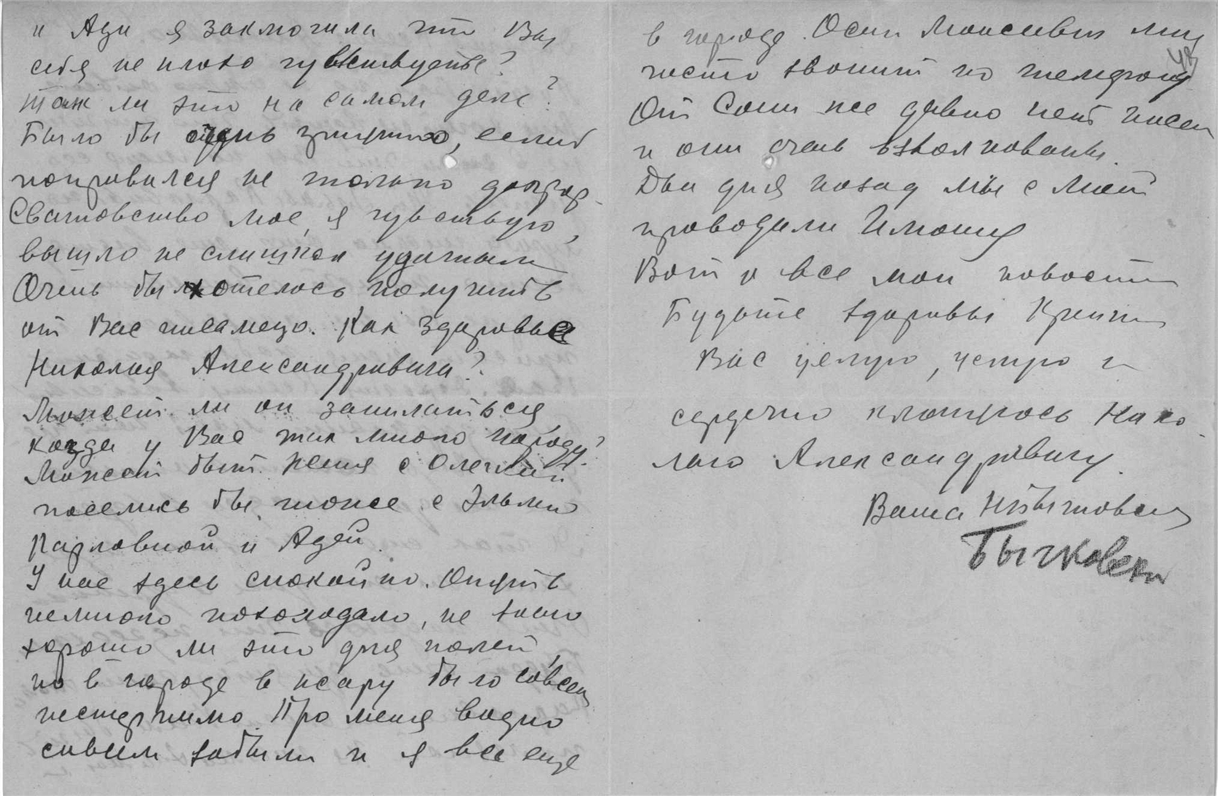 и Ади я заключила что Вы
себя не плохо чувствуете?
Так ли это на самом деле?
Было бы очень , если б
поправился не только
Сватовство мое, я чувствую,
вышло не слишком удачным
Очень бы хотелось получить
от Вас письмецо. Как здоровье
Николая Александровича?
Может ли он заниматься
когда у Вас так много народу?
Может быть Ксения с
поселись бы тоже с
Карловной и Адей.
У нас здесь спокойно. Опять
немного похолодало, не знаю
хорошо ли это для полей,
но в городе в жару было совсем
нестерпимо Про меня видно
совсем забыли и я все еще
в городе. Осип Моисеевич мне
43
часто звонит по телефону
От Сони все давно нет писем
и они очень взволнованы.
Два дня назад мы с
проводили
Вот и все мои новости
Будьте здоровы Крепко
Вас целую, и
сердечно кланяюсь Нико-
лаю Александровичу.
Ваша
Бычковская